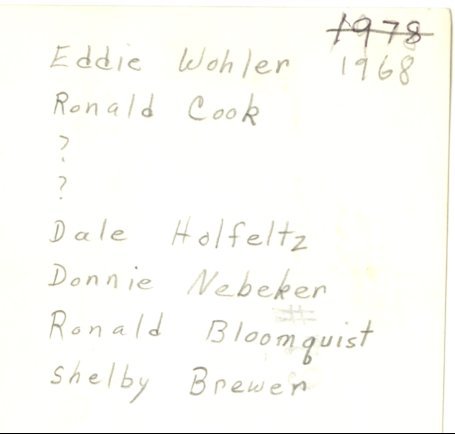 1978
Eddie Wohler 1968
Ronald Cook
?
?
Dale Holfeltz
Donnie Nebeker
Ronald Bloomquist
Shelby Brewer